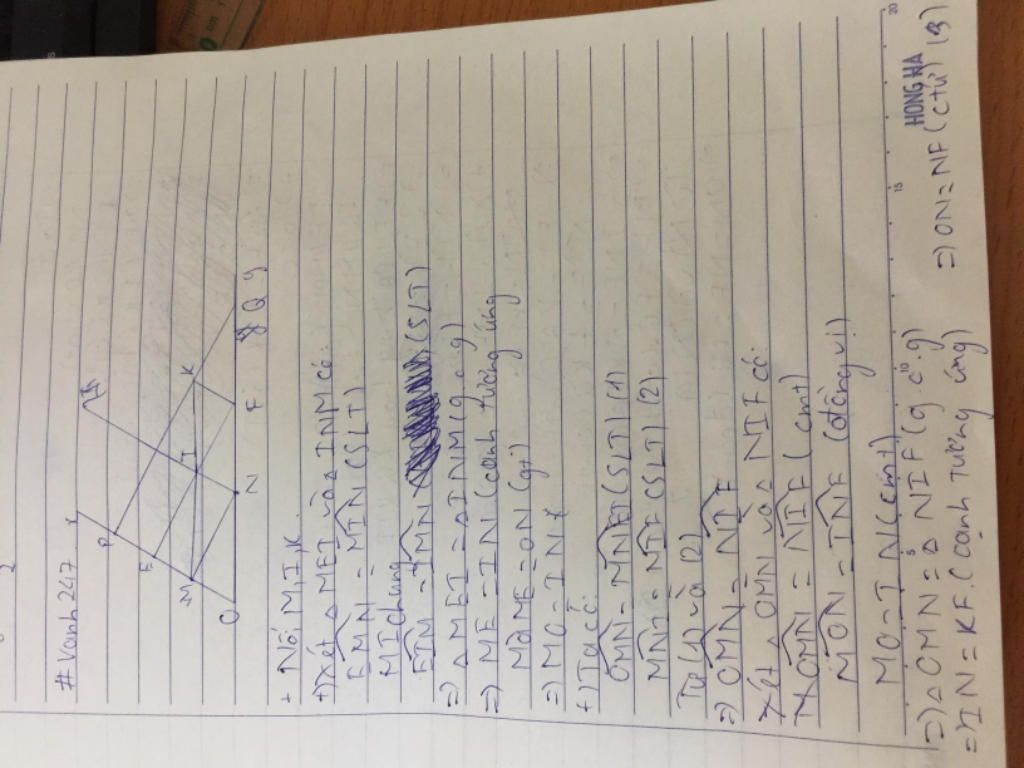 2
# Vanh 247
x
P
t
E
M
I
K
O
N
F
Q
y
+ Nối M, I, K
+) Xét △MEI và △INM có:
EMN = MIN (SLT)
MI chung
EIM = IMN (SLT)
=) △MEI = △INM (g.c.g)
=) ME = IN (cạnh tương ứng
Mà ME = ON (gt)
=) MO = IN
+) Ta có:
OMN = MNE (SLT) (1)
MNI = NIF (SLT) (2)
Từ (1) và (2)
=) OMN = NIF
Xét △OMN và △NIF có:
OMN = NIF (cmt)
MON = INF (đồng vị)
MO = IN (cmt)
=) △OMN = △NIF (g.c.g)
=) IN = KF. (cạnh tương ứng)
=) ON = NF (ctứ) (3)
10
15
20
HONG HA